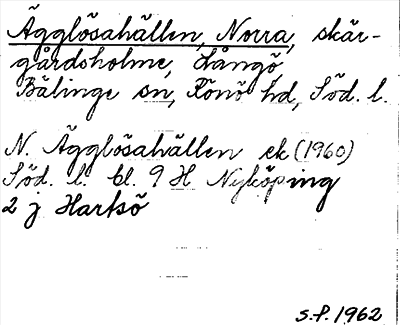 Ägglösahällen, Norra, skär-
gårdsholme, Långö,
Bälinge sn, Rönö hd, Söd. l.
N. Ägglösahällen ek (1960)
Söd. l. bl. 9 H Nyköping
2 j Hartsö
S.P. 1962